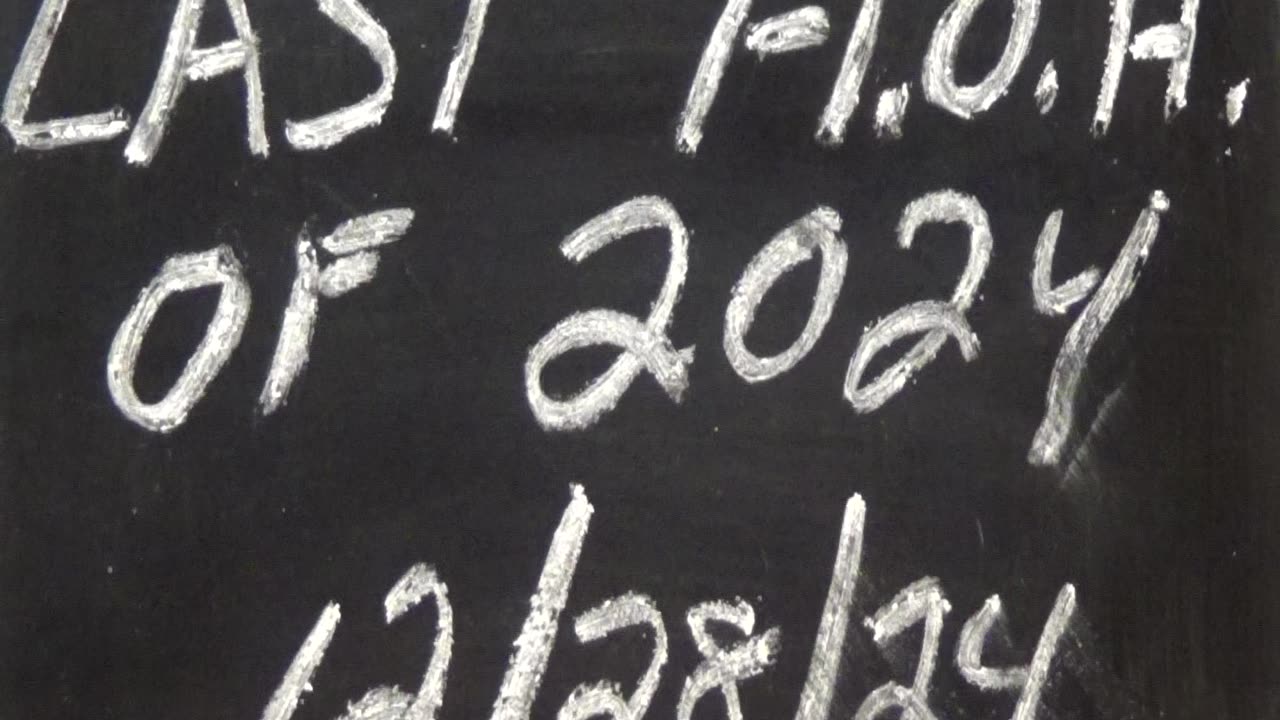 LAST H.O.H.
OF 2024
12/28/24